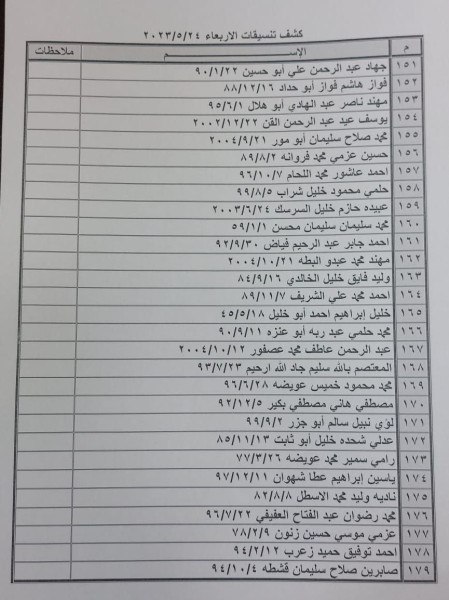 كشف تنسيقات الاربعاء ٢٠٢٣/٥/٢٤
م الإســـم ملاحظات
١٥١ جهاد عبد الرحمن علي أبو حسين ٩٠/١/٢٢
١٥٢ فواز هاشم فواز أبو حداد ٨٨/١٢/١٦
١٥٣ مهند ناصر عبد الهادي أبو هلال ٩٥/٦/١
١٥٤ يوسف عيد عبد الرحمن القن ٢٠٠٢/١٢/٢٢
١٥٥ محمد صلاح سليمان أبو مور ٢٠٠٤/٩/٢١
١٥٦ حسين عزمي محمد فروانه ٨٩/٨/٢
١٥٧ احمد عاشور محمد اللحام ٩٦/١٠/٧
١٥٨ حلمي محمود خليل شراب ٩٩/٨/٥
١٥٩ عبيده حازم خليل السرسك ٢٠٠٣/٦/٢٤
١٦٠ محمد سليمان سليمان محسن ٥٩/١/١
١٦١ احمد جابر عبد الرحيم فياض ٩٢/٩/٣٠
١٦٢ مهند محمد عبدو البطه ٢٠٠٤/١٠/٢١
١٦٣ وليد فايق خليل الخالدي ٨٤/٩/١٦
١٦٤ احمد محمد علي الشريف ٨٩/١١/٧
١٦٥ خليل إبراهيم احمد أبو خليل ٤٥/٥/١٨
١٦٦ محمد حلمي عبد ربه أبو عنزه ٩٠/٩/١١
١٦٧ عبد الرحمن عاطف محمد عصفور ٢٠٠٤/١٠/١٢
١٦٨ المعتصم بالله سليم جاد الله ارحيم ٩٣/٧/٢٣
١٦٩ محمد محمود خميس عويضه ٩٦/٦/٢٨
١٧٠ مصطفي هاني مصطفي بكير ٩٢/١٢/٥
١٧١ لؤي نبيل سالم أبو جزر ٩٩/٩/٢
١٧٢ عدلي شحده خليل أبو ثابت ٨٥/١١/١٣
١٧٣ رامي سمير محمد عويضه ٧٧/٣/٢٦
١٧٤ ياسين إبراهيم عطا شهوان ٩٧/١٢/١١
١٧٥ ناديه وليد محمد الاسطل ٨٢/٨/٨
١٧٦ محمد رضوان عبد الفتاح العفيفي ٩٦/٧/٢٢
١٧٧ عزمي موسي حسين زنون ٧٨/٢/٩
١٧٨ احمد توفيق حميد زعرب ٩٤/٢/١٢
١٧٩ صابرين صلاح سليمان قشطه ٩٤/١٠/٤